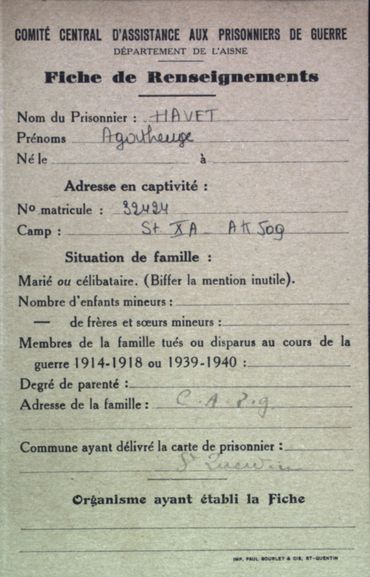 COMITÉ CENTRAL D'ASSISTANCE AUX PRISONNIERS DE GUERRE
DÉPARTEMENT DE L'AISNE
Fiche de Renseignements
Nom du Prisonnier : HAVET
Prénoms
Né le à
Adresse en captivité :
No matricule : 32424
Camp : St XA AK 509
Situation de famille :
Marié ou célibataire. (Biffer la mention inutile).
Nombre d'enfants mineurs :
— de frères et sœurs mineurs :
Membres de la famille tués ou disparus au cours de la
guerre 1914-1918 ou 1939-1940 :
Degré de parenté :
Adresse de la famille : C.A.P.g
Commune ayant délivré la carte de prisonnier :
St Quentin
Organisme ayant établi la Fiche
IMP. PAUL BOURLET & CIE, ST-QUENTIN